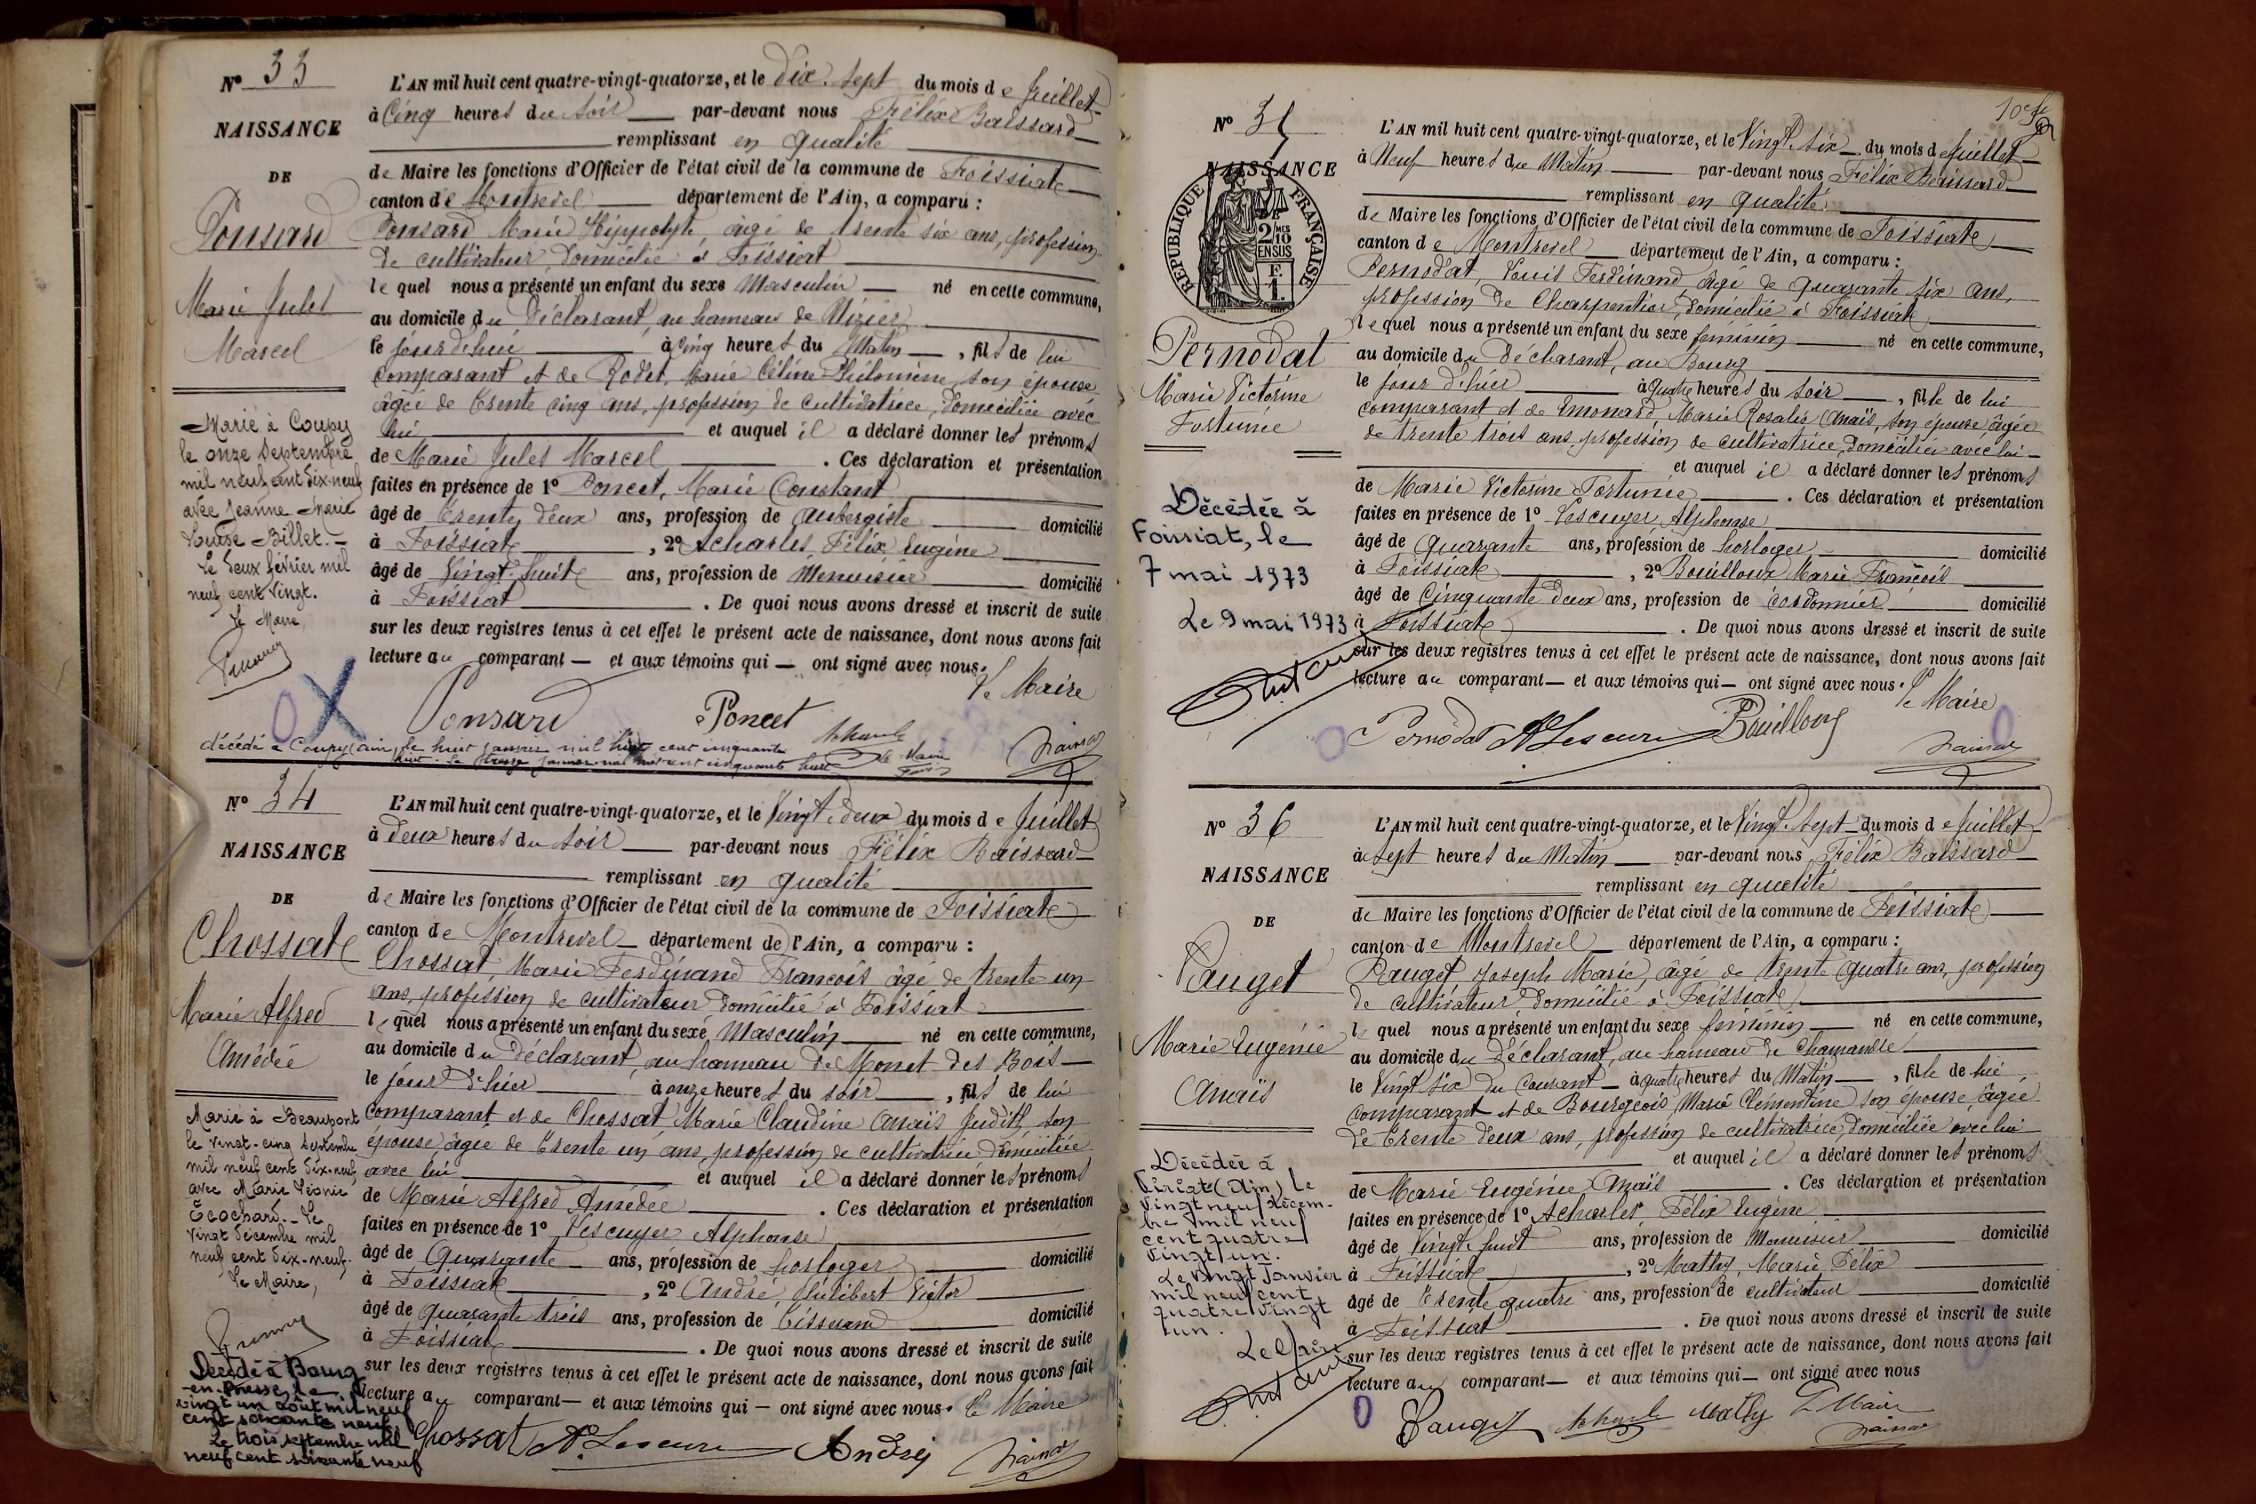 Nº 33
NAISSANCE
DE
Ponsard
Marie Jules
Marcel
Marié à Coupy
le onze Septembre
mil neuf cent dix-neuf
avec Jeanne Marie
Louise Billet.
Le deux février mil
neuf cent vingt.
Le Maire,
L'AN mil huit cent quatre-vingt-quatorze, et le Dix-sept du mois de Juillet
à Cinq heures du Soir par-devant nous Félix Baissard
remplissant en qualité
de Maire les fonctions d'Officier de l'état civil de la commune de Foissiat
canton de Montrevel département de l'Ain, a comparu :
Ponsard Marie Hippolyte, âgé de trente six ans, profession
de cultivateur, domicilié à Foissiat
lequel nous a présenté un enfant du sexe Masculin né en cette commune,
au domicile du Déclarant, au hameau de
le jour d'hui à cinq heures du Matin, fils de lui
comparant et de Rodet, Marie Céline Philomène, son épouse
âgée de trente cinq ans, profession de cultivatrice, domiciliée avec
lui et auquel il a déclaré donner les prénoms
de Marie Jules Marcel. Ces déclaration et présentation
faites en présence de 1º Poncet, Marie Constant
âgé de trente deux ans, profession de aubergiste domicilié
à Foissiat, 2º Acharles, Félix Eugène
âgé de Vingt-huit ans, profession de Menuisier domicilié
à Foissiat. De quoi nous avons dressé et inscrit de suite
sur les deux registres tenus à cet effet le présent acte de naissance, dont nous avons fait
lecture au comparant et aux témoins qui ont signé avec nous.
Le Maire
Ponsard Poncet
décédé à Coupy (Ain) le huit janvier mil neuf cent cinquante
huit. Le treize janvier mil neuf cent cinquante huit Le Maire
Nº 34
NAISSANCE
DE
Chossat
Marie Alfred
Amédée
Marié à Beaupont
le vingt-cinq Septembre
mil neuf cent dix-neuf,
avec Marie Léonie
Ecochard. Le
vingt décembre mil
neuf cent dix-neuf.
Le Maire,
Décédé à Bourg
-en-Bresse, le
vingt un août mil neuf
cent soixante neuf
Le trois septembre mil
neuf cent soixante neuf
L'AN mil huit cent quatre-vingt-quatorze, et le Vingt-deux du mois de Juillet
à Deux heures du Soir par-devant nous Félix Baissard
remplissant en qualité
de Maire les fonctions d'Officier de l'état civil de la commune de Foissiat
canton de Montrevel département de l'Ain, a comparu :
Chossat, Marie Ferdinand François, âgé de trente un
ans, profession de cultivateur domicilié à Foissiat
lequel nous a présenté un enfant du sexe Masculin né en cette commune,
au domicile du Déclarant, au hameau de Monet des Bois
le jour d'hier à onze heures du soir, fils de lui
comparant et de Chossat Marie Claudine Anaïs Judith, son
épouse, âgée de trente un ans, profession de cultivatrice domiciliée
avec lui et auquel il a déclaré donner les prénoms
de Marie Alfred Amédée. Ces déclaration et présentation
faites en présence de 1º Lescuyer Alphonse
âgé de Quarante ans, profession de horloger domicilié
à Foissiat, 2º André Philibert Victor
âgé de quarante trois ans, profession de Tisserand domicilié
à Foissiat. De quoi nous avons dressé et inscrit de suite
sur les deux registres tenus à cet effet le présent acte de naissance, dont nous avons fait
lecture au comparant et aux témoins qui ont signé avec nous. Le Maire
Chossat André
Nº 35
NAISSANCE
RÉPUBLIQUE FRANÇAISE
2 MES 10
EN SUS
F. 1.
Pernodat
Marie Victorine
Fortunée
Décédée à
Foissiat, le
7 mai 1973
Le 9 mai 1973
L'AN mil huit cent quatre-vingt-quatorze, et le Vingt-six du mois de Juillet
à Neuf heures du Matin par-devant nous Félix Baissard
remplissant en qualité
de Maire les fonctions d'Officier de l'état civil de la commune de Foissiat
canton de Montrevel département de l'Ain, a comparu :
Pernodat, Louis Ferdinand, âgé de quarante six ans,
profession de Charpentier, domicilié à Foissiat
lequel nous a présenté un enfant du sexe féminin né en cette commune,
au domicile du Déclarant, au Bourg
le jour d'hier à quatre heures du Soir, fille de lui
comparant et de Emonard, Marie Rosalie Anaïs, son épouse âgée
de trente trois ans, profession de cultivatrice, domiciliée avec lui
et auquel il a déclaré donner les prénoms
de Marie Victorine Fortunée. Ces déclaration et présentation
faites en présence de 1º Lescuyer Alphonse
âgé de quarante ans, profession de horloger domicilié
à Foissiat, 2º Bouilloux Marie François
âgé de Cinquante deux ans, profession de cordonnier domicilié
à Foissiat. De quoi nous avons dressé et inscrit de suite
sur les deux registres tenus à cet effet le présent acte de naissance, dont nous avons fait
lecture au comparant et aux témoins qui ont signé avec nous. Le Maire
Pernodat Bouilloux
Nº 36
NAISSANCE
DE
Pauget
Marie Eugénie
Anaïs
Décédée à
Viriat (Ain) le
vingt neuf décem-
bre mil neuf
cent quatre
vingt un.
Le vingt Janvier
mil neuf cent
quatre vingt
un.
L'AN mil huit cent quatre-vingt-quatorze, et le Vingt-sept du mois de Juillet
à Sept heures du Matin par-devant nous Félix Baissard
remplissant en qualité
de Maire les fonctions d'Officier de l'état civil de la commune de Foissiat
canton de Montrevel département de l'Ain, a comparu :
Pauget Joseph Marie, âgé de trente quatre ans, profession
de cultivateur domicilié à Foissiat
lequel nous a présenté un enfant du sexe féminin né en cette commune,
au domicile du Déclarant, au hameau de Chamandre
le Vingt six du Courant à quatre heures du Matin, fille de lui
comparant et de Bourgeois Marie Clémentine son épouse, âgée
de trente deux ans, profession de cultivatrice, domiciliée avec lui
et auquel il a déclaré donner les prénoms
de Marie Eugénie Anaïs. Ces déclaration et présentation
faites en présence de 1º Acharles Félix Eugène
âgé de Vingt-huit ans, profession de Menuisier domicilié
à Foissiat, 2º Mathy, Marie Félix
âgé de trente quatre ans, profession de cultivateur domicilié
à Foissiat. De quoi nous avons dressé et inscrit de suite
sur les deux registres tenus à cet effet le présent acte de naissance, dont nous avons fait
lecture au comparant et aux témoins qui ont signé avec nous
Pauget Mathy Le Maire